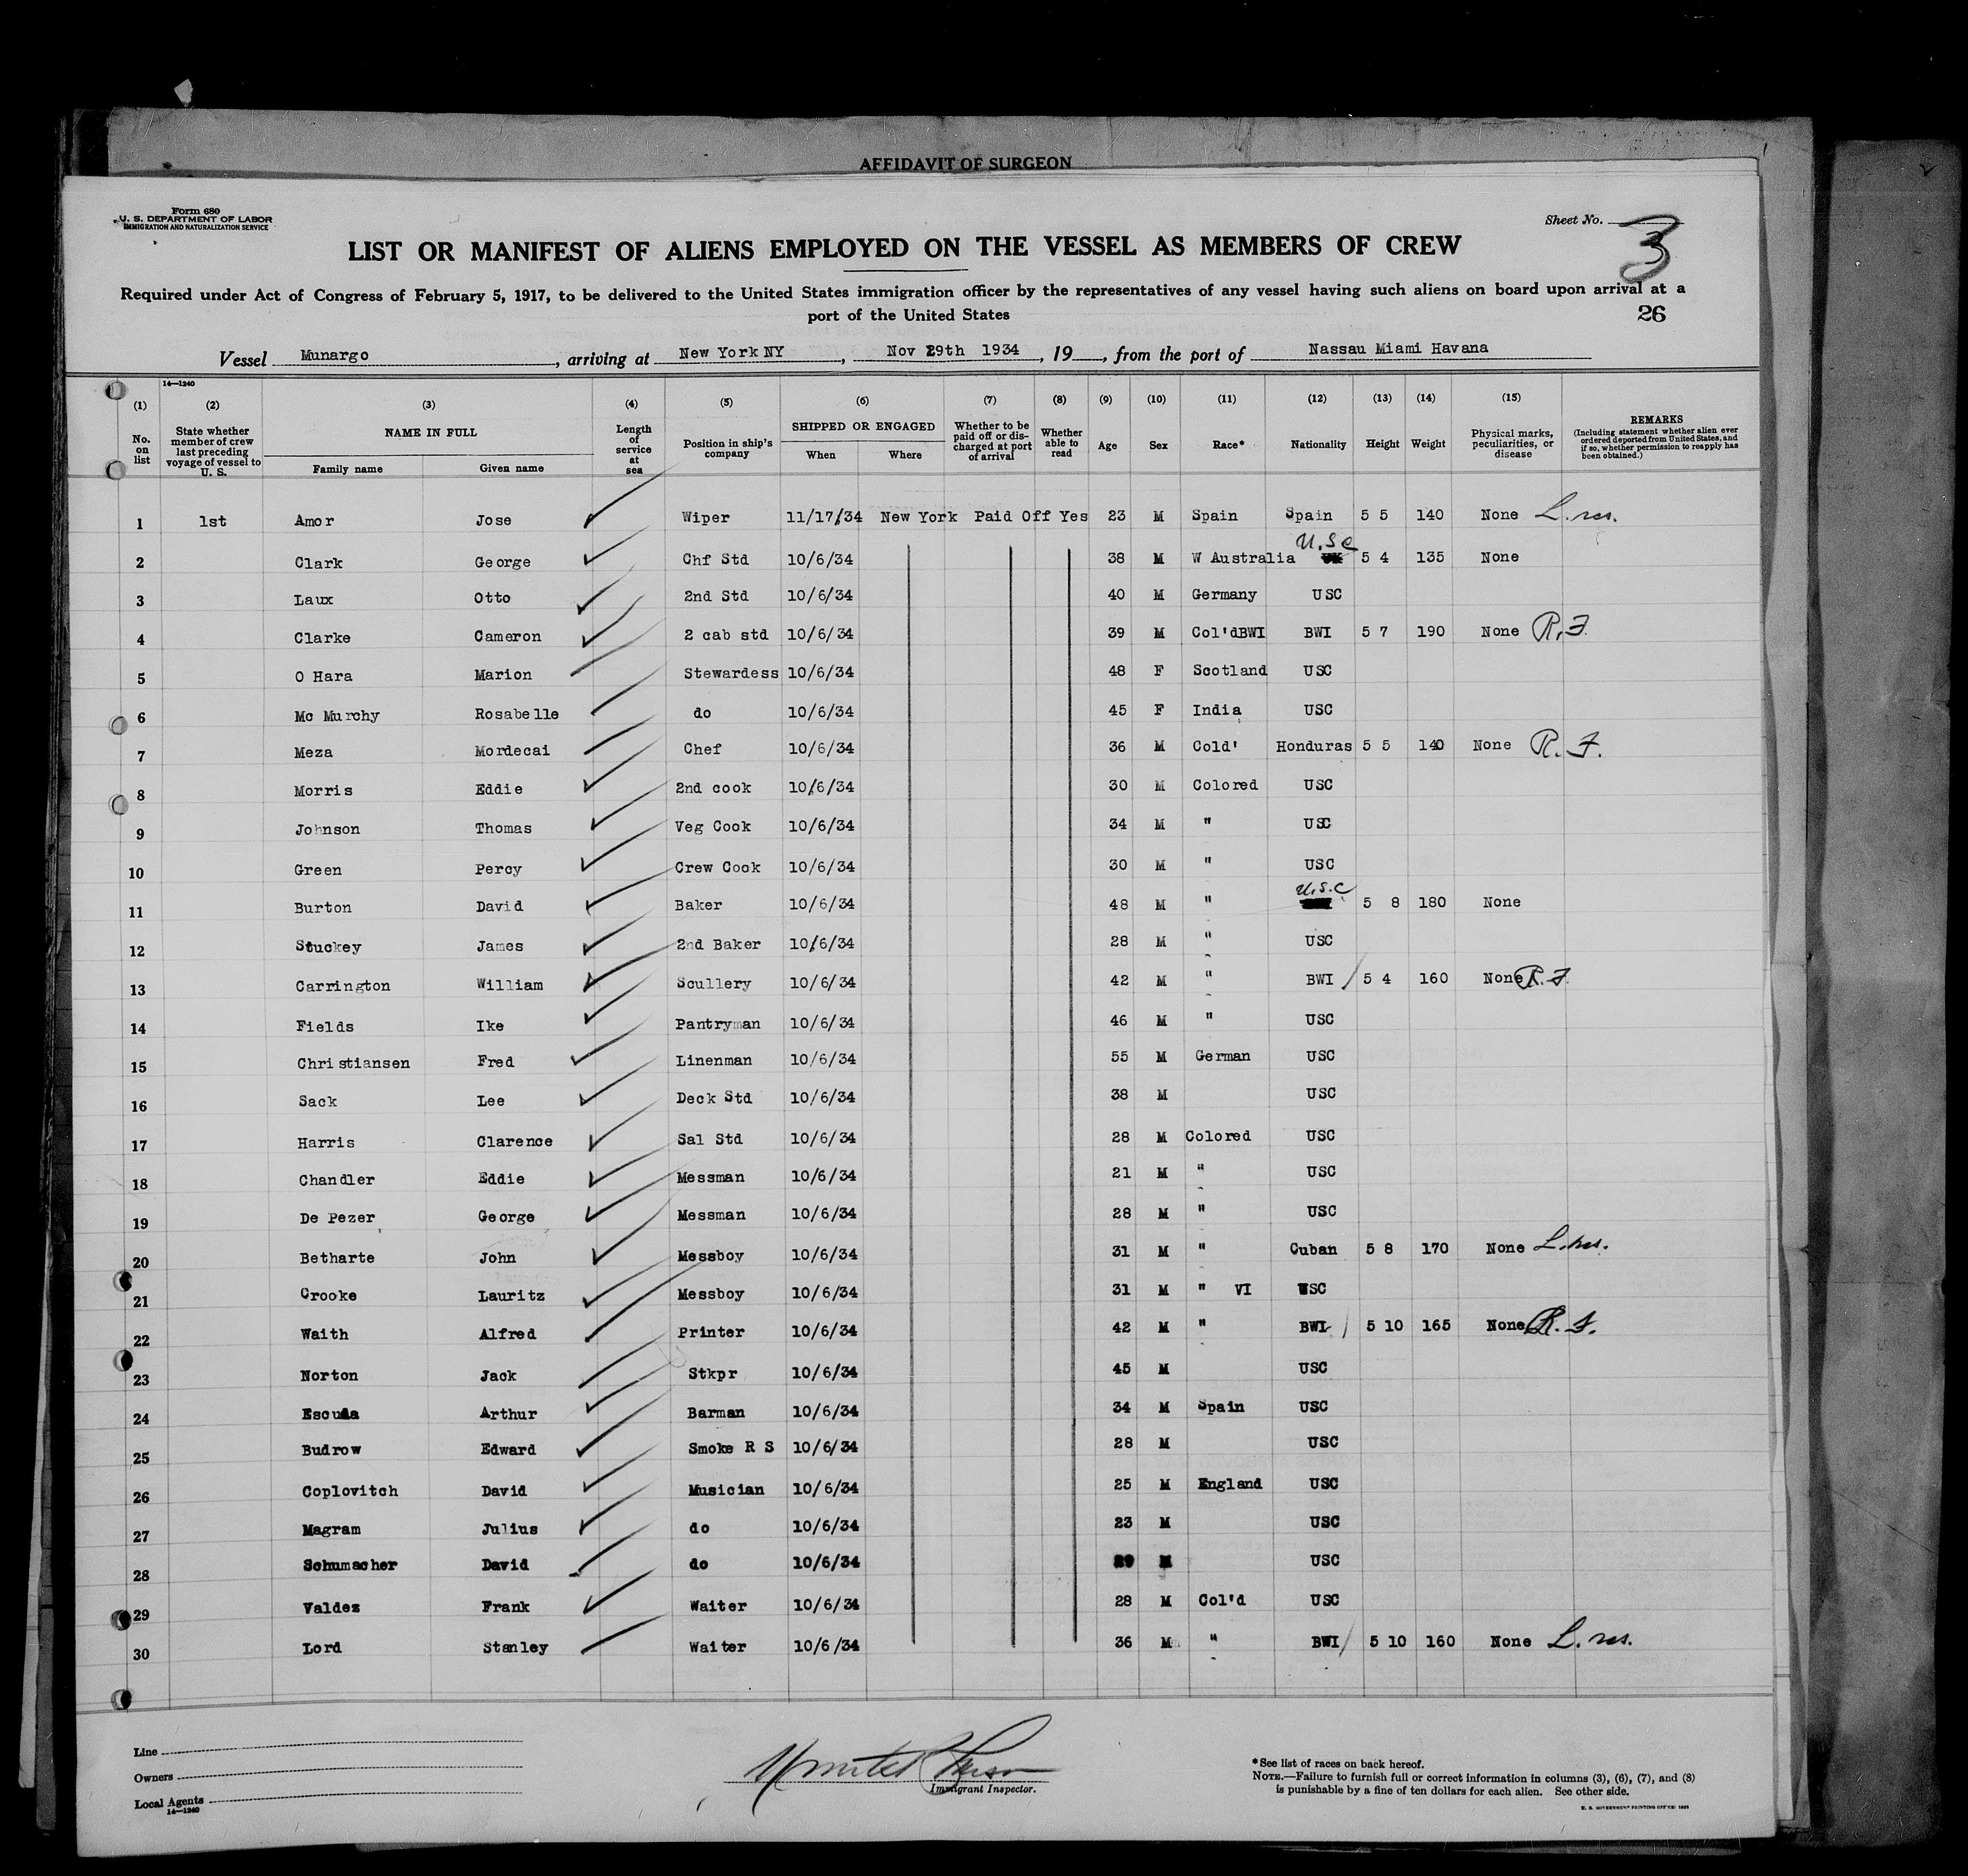 AFFIDAVIT OF SURGEON
Form 680
U. S. DEPARTMENT OF LABOR
IMMIGRATION AND NATURALIZATION SERVICE
Sheet No. 3
LIST OR MANIFEST OF ALIENS EMPLOYED ON THE VESSEL AS MEMBERS OF CREW
Required under Act of Congress of February 5, 1917, to be delivered to the United States immigration officer by the representatives of any vessel having such aliens on board upon arrival at a
port of the United States
26
Vessel Munargo, arriving at New York NY, Nov 29th 1934, 19, from the port of Nassau Miami Havana
14—1240
(1) (2) (3) (4) (5) (6) (7) (8) (9) (10) (11) (12) (13) (14) (15)
No. on list State whether member of crew last preceding voyage of vessel to U. S. NAME IN FULL Family name Given name Length of service at sea Position in ship's company SHIPPED OR ENGAGED When Where Whether to be paid off or discharged at port of arrival Whether able to read Age Sex Race* Nationality Height Weight Physical marks, peculiarities, or disease REMARKS (Including statement whether alien ever ordered deported from United States, and if so, whether permission to reapply has been obtained.)
1 1st Amor Jose Wiper 11/17/34 New York Paid Off Yes 23 M Spain Spain 5 5 140 None L. res.
2 Clark George Chf Std 10/6/34 38 M W Australia U.S.C 5 4 135 None
3 Laux Otto 2nd Std 10/6/34 40 M Germany USC
4 Clarke Cameron 2 cab std 10/6/34 39 M Col'dBWI BWI 5 7 190 None R.F.
5 O Hara Marion Stewardess 10/6/34 48 F Scotland USC
6 Mc Murchy Rosabelle do 10/6/34 45 F India USC
7 Meza Mordecai Chef 10/6/34 36 M Cold' Honduras 5 5 140 None R. F.
8 Morris Eddie 2nd cook 10/6/34 30 M Colored USC
9 Johnson Thomas Veg Cook 10/6/34 34 M " USC
10 Green Percy Crew Cook 10/6/34 30 M " USC
11 Burton David Baker 10/6/34 48 M " U.S.C 5 8 180 None
12 Stuckey James 2nd Baker 10/6/34 28 M " USC
13 Carrington William Scullery 10/6/34 42 M " BWI 5 4 160 None R. F.
14 Fields Ike Pantryman 10/6/34 46 M " USC
15 Christiansen Fred Linenman 10/6/34 55 M German USC
16 Sack Lee Deck Std 10/6/34 38 M USC
17 Harris Clarence Sal Std 10/6/34 28 M Colored USC
18 Chandler Eddie Messman 10/6/34 21 M " USC
19 De Pezer George Messman 10/6/34 28 M " USC
20 Betharte John Messboy 10/6/34 31 M " Cuban 5 8 170 None L. res.
21 Crooke Lauritz Messboy 10/6/34 31 M " VI USC
22 Waith Alfred Printer 10/6/34 42 M " BWI 5 10 165 None R. F.
23 Norton Jack Stkpr 10/6/34 45 M USC
24 Escuda Arthur Barman 10/6/34 34 M Spain USC
25 Budrow Edward Smoke R S 10/6/34 28 M USC
26 Coplovitch David Musician 10/6/34 25 M England USC
27 Magram Julius do 10/6/34 23 M USC
28 Schumacher David do 10/6/34 29 M USC
29 Valdez Frank Waiter 10/6/34 28 M Col'd USC
30 Lord Stanley Waiter 10/6/34 36 M " BWI 5 10 160 None L. res.
Line
Owners
Local Agents
14—1240
Immigrant Inspector.
*See list of races on back hereof.
NOTE.—Failure to furnish full or correct information in columns (3), (6), (7), and (8)
is punishable by a fine of ten dollars for each alien. See other side.